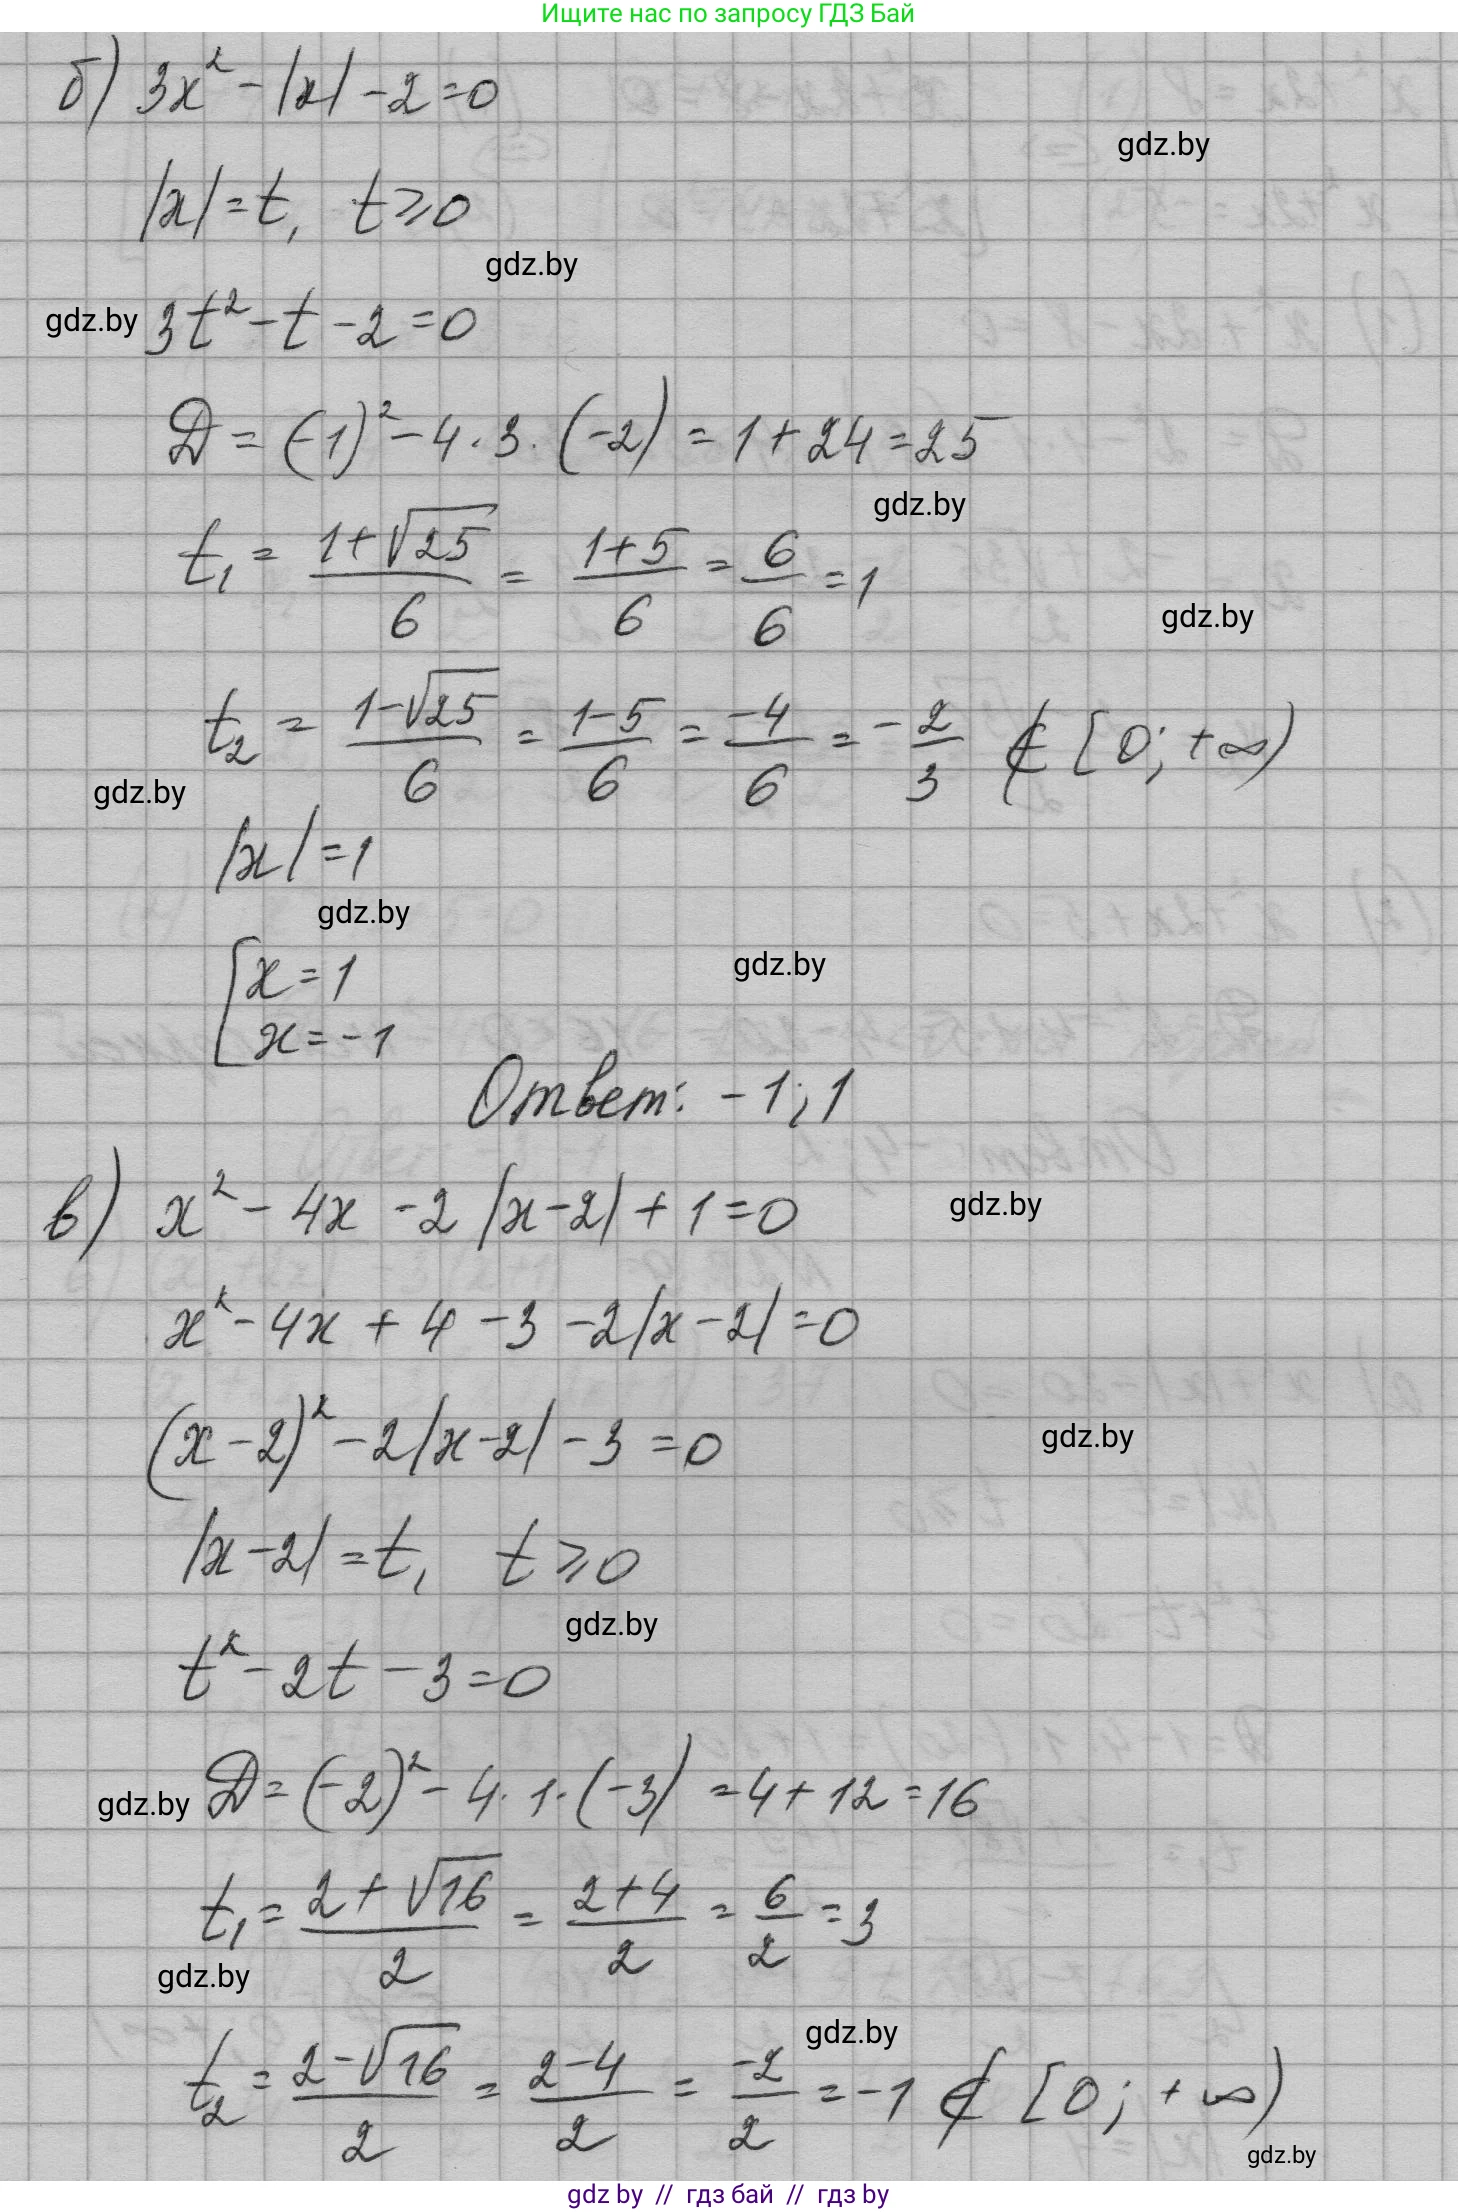 Ищите нас по запросу ГДЗ Бай
б) 3x² - |x| - 2 = 0
gdz.by
|x| = t, t ⩾ 0
gdz.by
gdz.by 3t² - t - 2 = 0
D = (-1)² - 4 · 3 · (-2) = 1 + 24 = 25
gdz.by
t₁ = (1+√25)/6 = (1+5)/6 = 6/6 = 1
gdz.by
t₂ = (1-√25)/6 = (1-5)/6 = -4/6 = -2/3 ∉ [0; +∞)
gdz.by
|x| = 1
gdz.by
gdz.by
[x = 1
x = -1
Ответ: -1; 1
в) x² - 4x - 2|x-2| + 1 = 0
gdz.by
x² - 4x + 4 - 3 - 2|x-2| = 0
(x-2)² - 2|x-2| - 3 = 0
gdz.by
|x-2| = t, t ⩾ 0
gdz.by
t² - 2t - 3 = 0
gdz.by D = (-2)² - 4 · 1 · (-3) = 4 + 12 = 16
t₁ = (2+√16)/2 = (2+4)/2 = 6/2 = 3
gdz.by
gdz.by
t₂ = (2-√16)/2 = (2-4)/2 = -2/2 = -1 ∉ [0; +∞)
gdz.by
gdz by // гдз бай // гдз by